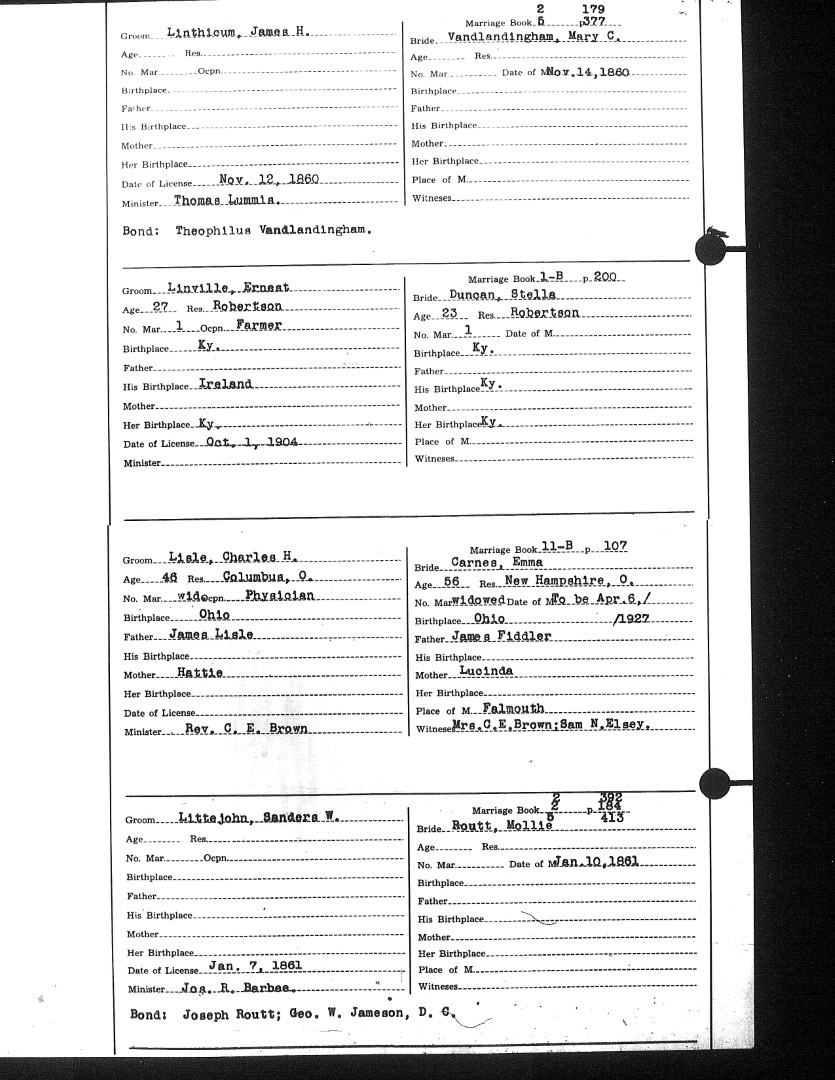 2 179
Marriage Book 5 p 377
Groom Linthicum, James H.
Bride Vandlandingham, Mary C.
Age Res.
Age Res.
No. Mar Ocpn.
No. Mar. Date of M Nov.14,1860
Birthplace
Birthplace
Father
Father
His Birthplace
His Birthplace
Mother
Mother
Her Birthplace
Her Birthplace
Date of License Nov. 12, 1860
Place of M.
Minister Thomas Lummis.
Witneses
Bond: Theophilus Vandlandingham.
Marriage Book 1-B p. 200
Groom Linville, Ernest
Bride Duncan, Stella
Age 27 Res. Robertson
Age 23 Res. Robertson
No. Mar 1 Ocpn. Farmer
No. Mar. 1 Date of M.
Birthplace Ky.
Birthplace Ky.
Father
Father
His Birthplace Ireland
His Birthplace Ky.
Mother
Mother
Her Birthplace Ky.
Her Birthplace Ky.
Date of License Oct. 1, 1904
Place of M.
Minister
Witneses
Marriage Book 11-B p. 107
Groom Lisle, Charles H.
Bride Carnes, Emma
Age 46 Res. Columbus, O.
Age 56 Res. New Hampshire, O.
No. Mar. wido cpn. Physician
No. Mar widowed Date of M To be Apr.6,/
Birthplace Ohio
Birthplace Ohio /1927
Father James Lisle
Father James Fiddler
His Birthplace
His Birthplace
Mother Hattie
Mother Lucinda
Her Birthplace
Her Birthplace
Date of License
Place of M. Falmouth
Minister Rev. C. E. Brown
Witneses Mrs.C.E.Brown;Sam N.Elsey.
2 392
Marriage Book 2 p 184
5 413
Groom Littejohn, Sanders W.
Bride Routt, Mollie
Age Res.
Age Res.
No. Mar. Ocpn.
No. Mar. Date of M Jan.10,1861
Birthplace
Birthplace
Father
Father
His Birthplace
His Birthplace
Mother
Mother
Her Birthplace
Her Birthplace
Date of License Jan. 7, 1861
Place of M.
Minister Jos. R. Barbee.
Witneses
Bond: Joseph Routt; Geo. W. Jameson, D. C.